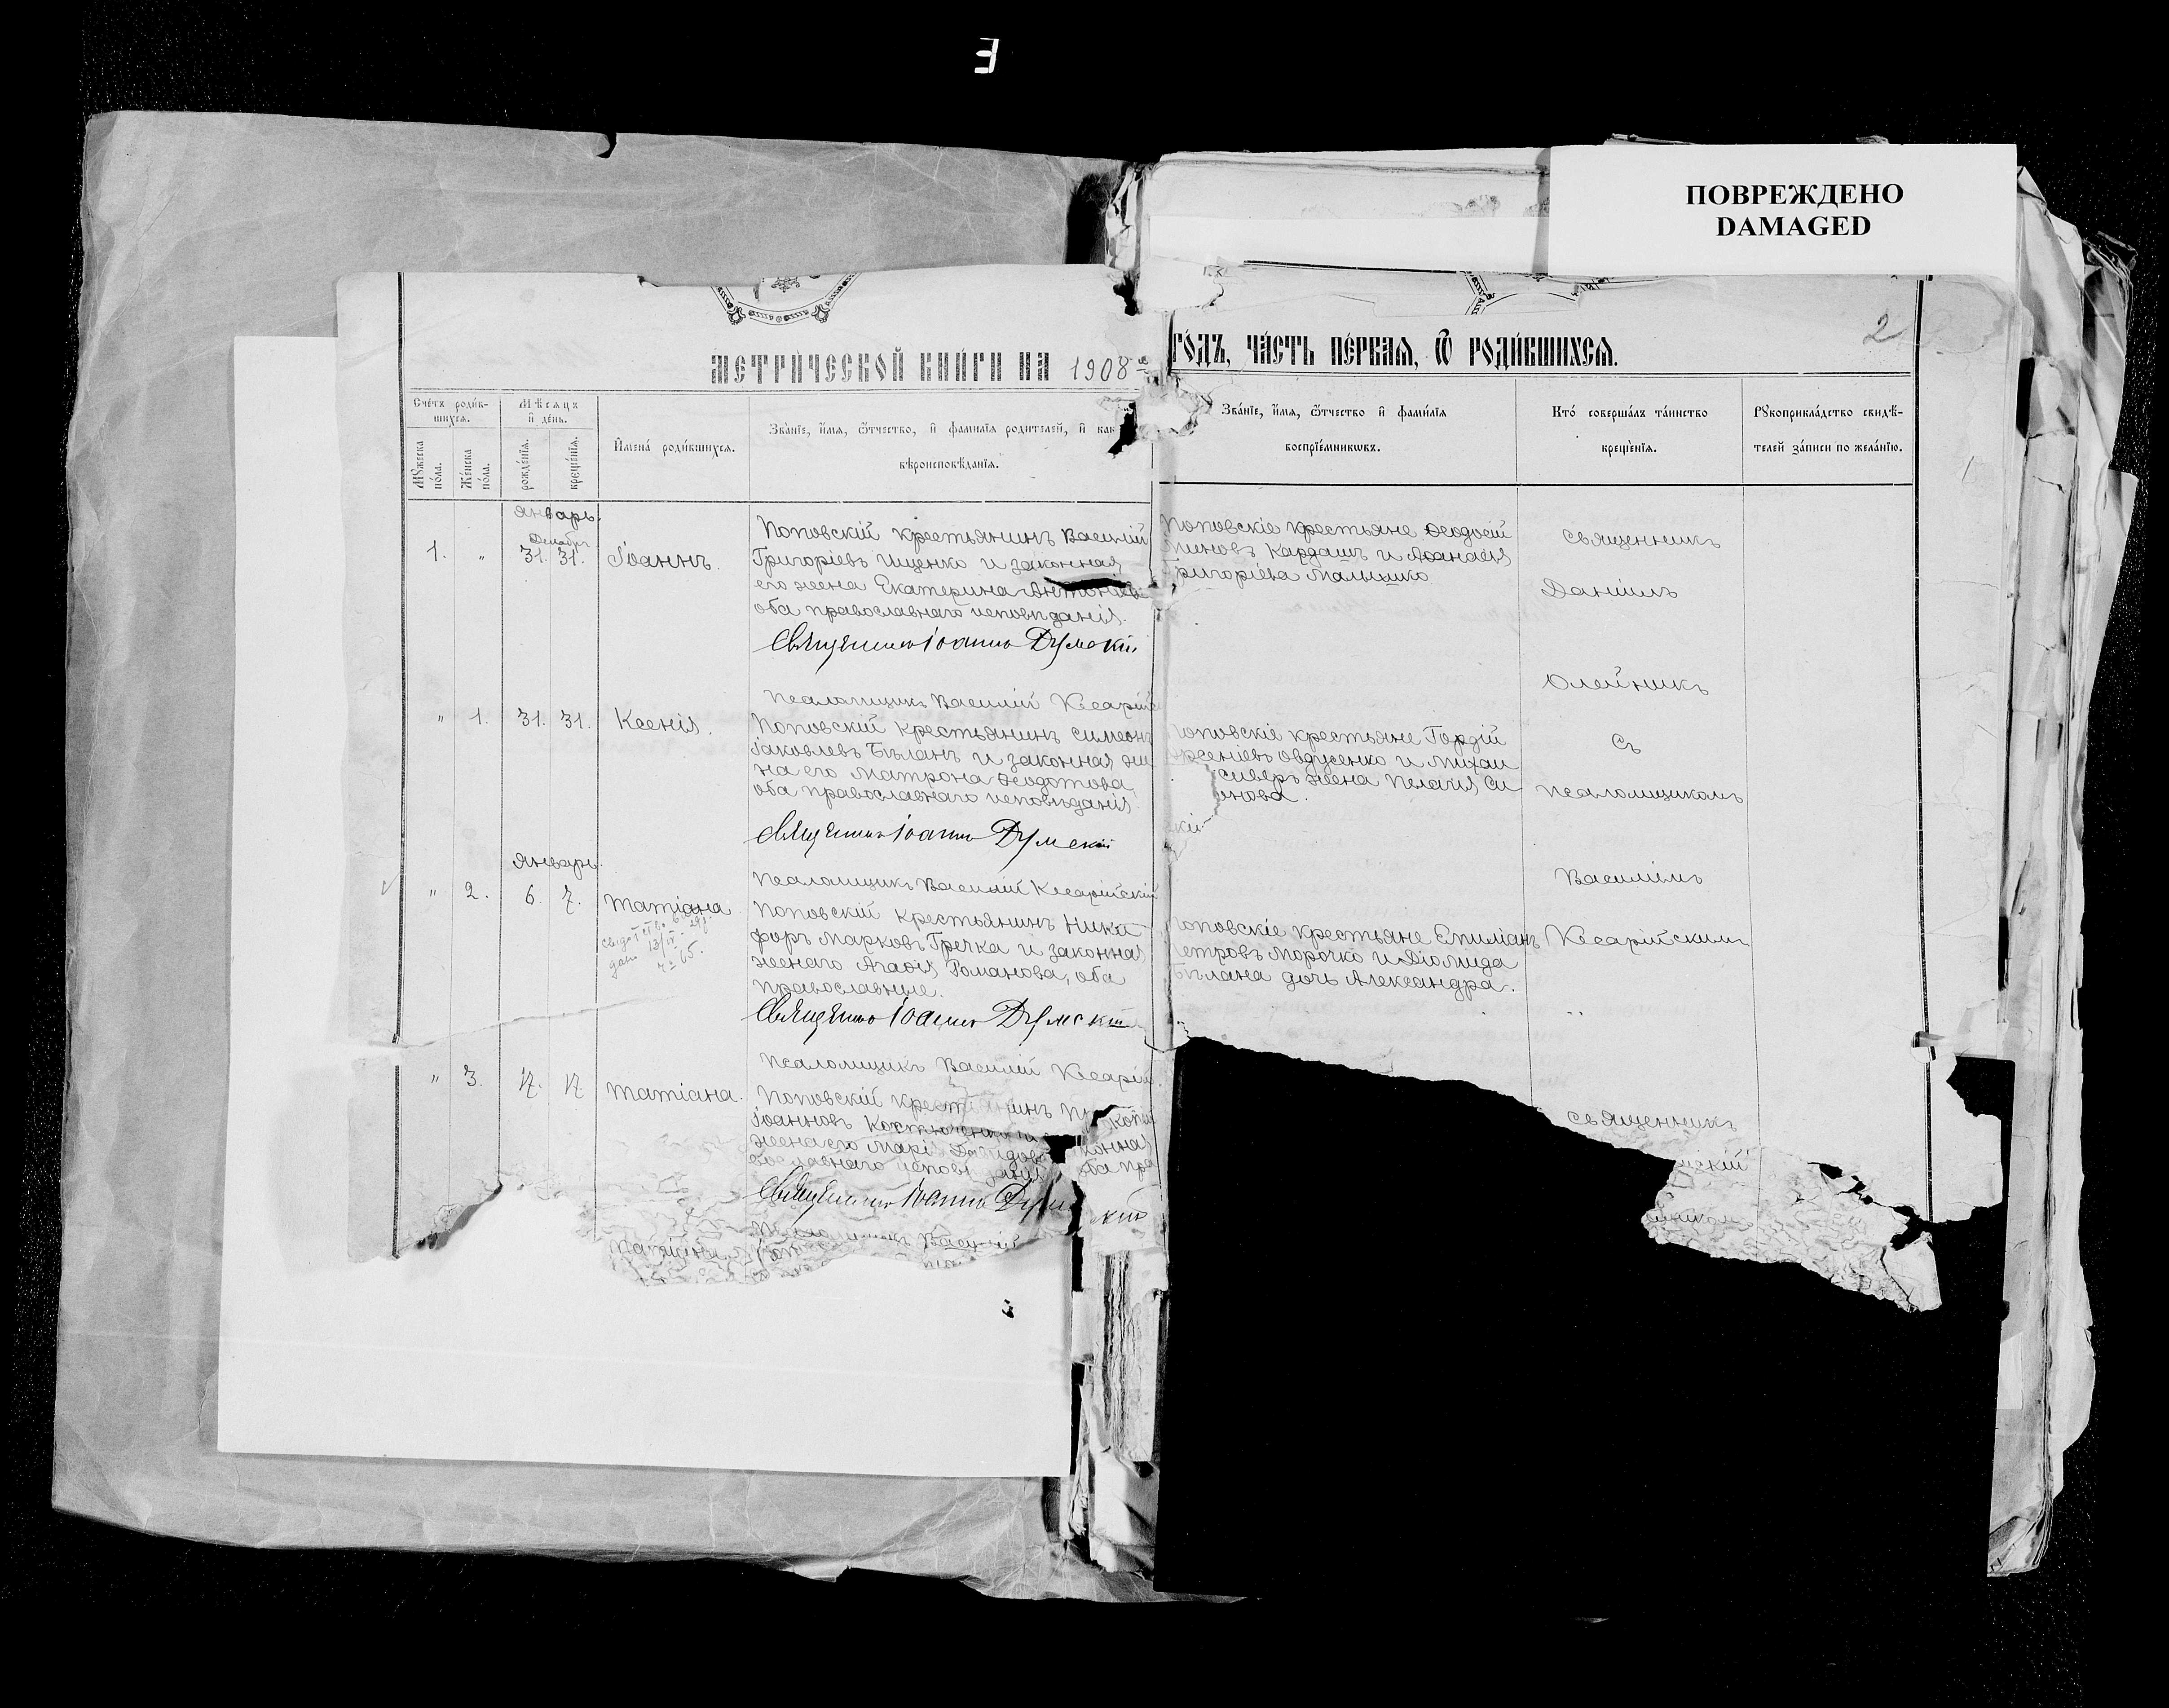 ПОВРЕЖДЕНО
DAMAGED
2
МЕТРИ́ЧЕСКОЙ КНИ́ГИ НА 1908 ГО́ДЪ, ЧА́СТЬ ПЕ́РВАѦ, Ѿ РОДИ́ВШИХСѦ.
Сче́тъ роди́в-
шихсѧ.
Му́жеска по́ла.
Же́нска по́ла.
Мѣ́сѧцъ
и де́нь.
рожде́нїѧ.
креще́нїѧ.
Имена́ роди́вшихсѧ.
Зва́нїе, и́мѧ, ѻ́тчество, и фами́лїѧ роди́телей, и как
вѣроисповѣ́данїѧ.
Зва́нїе, и́мѧ, ѻ́тчество и фами́лїѧ
воспрїе́мникѡвъ.
Кто́ соверша́лъ та́инство
креще́нїѧ.
Рꙋкоприкла́дство свидѣ́-
телей за́писи по жела́нїю.
Январь.
Декабрь
1. " 31. 31. Іоаннъ.
Поповскій крестьянинъ Василій
Григоріевъ Ищенко и законная
его жена Екатерина Антоніев
оба православнаго исповѣданія.
Священникъ Іоаннъ Думскій
Псаломщикъ Василій Кесарійс
Поповскіе крестьяне Ѳеодосій
Кардашъ и Аѳанасія
ригоріева Малышко
Священникъ
Даніилъ
Олейникъ
" 1. 31. 31. Ксенія.
Поповскій крестьянинъ Симеонъ
Іаковлевъ Бѣланъ и законная же
на его Матрона Ѳеодотова,
оба православнаго исповѣданія
Священникъ Іоаннъ Думскій
Псаломщикъ Василій Кесарійскій
оповскіе крестьяне Гордій
рсеніевъ Овдѣенко и Михаи
жена Пелагія Си
онова.
съ
псаломщикомъ
Василіемъ
Январь.
" 2. 6. 7. Татіана
13/IV 29 г.
№ 65.
Поповскій крестьянинъ Ники-
форъ Марковъ Гречка и законная
жена его Агаѳія Романова, оба
православные.
Священникъ Іоаннъ Думскій
Псаломщикъ Василій Кесарій
оповскіе крестьяне Емиліанъ
етровъ Морочко и Діомида
ѣлана дочь Александра.
Кесарійскимъ
" 3. 17. 17 Татіана.
Поповскій крест инъ Пр коп
Іоанновъ конная
жена его Марі Давидов ба пра
вославнаго исповѣданія
Священникъ Іоаннъ Дум кій
Псаломщикъ Василій
Татіана
Священникъ
скій